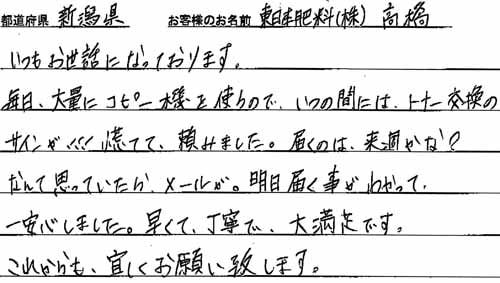 都道府県 新潟県 お客様のお名前 東日本肥料(株) 高橋
いつもお世話になっております。
毎日、大量にコピー機を使うので、いつの間には、トナー交換の
サインが!!! 慌てて、頼みました。届くのは、来週かな?
なんて思っていたら、メールが。明日届く事がわかって、
一安心しました。早くて、丁寧で、大満足です。
これからも、宜しくお願い致します。